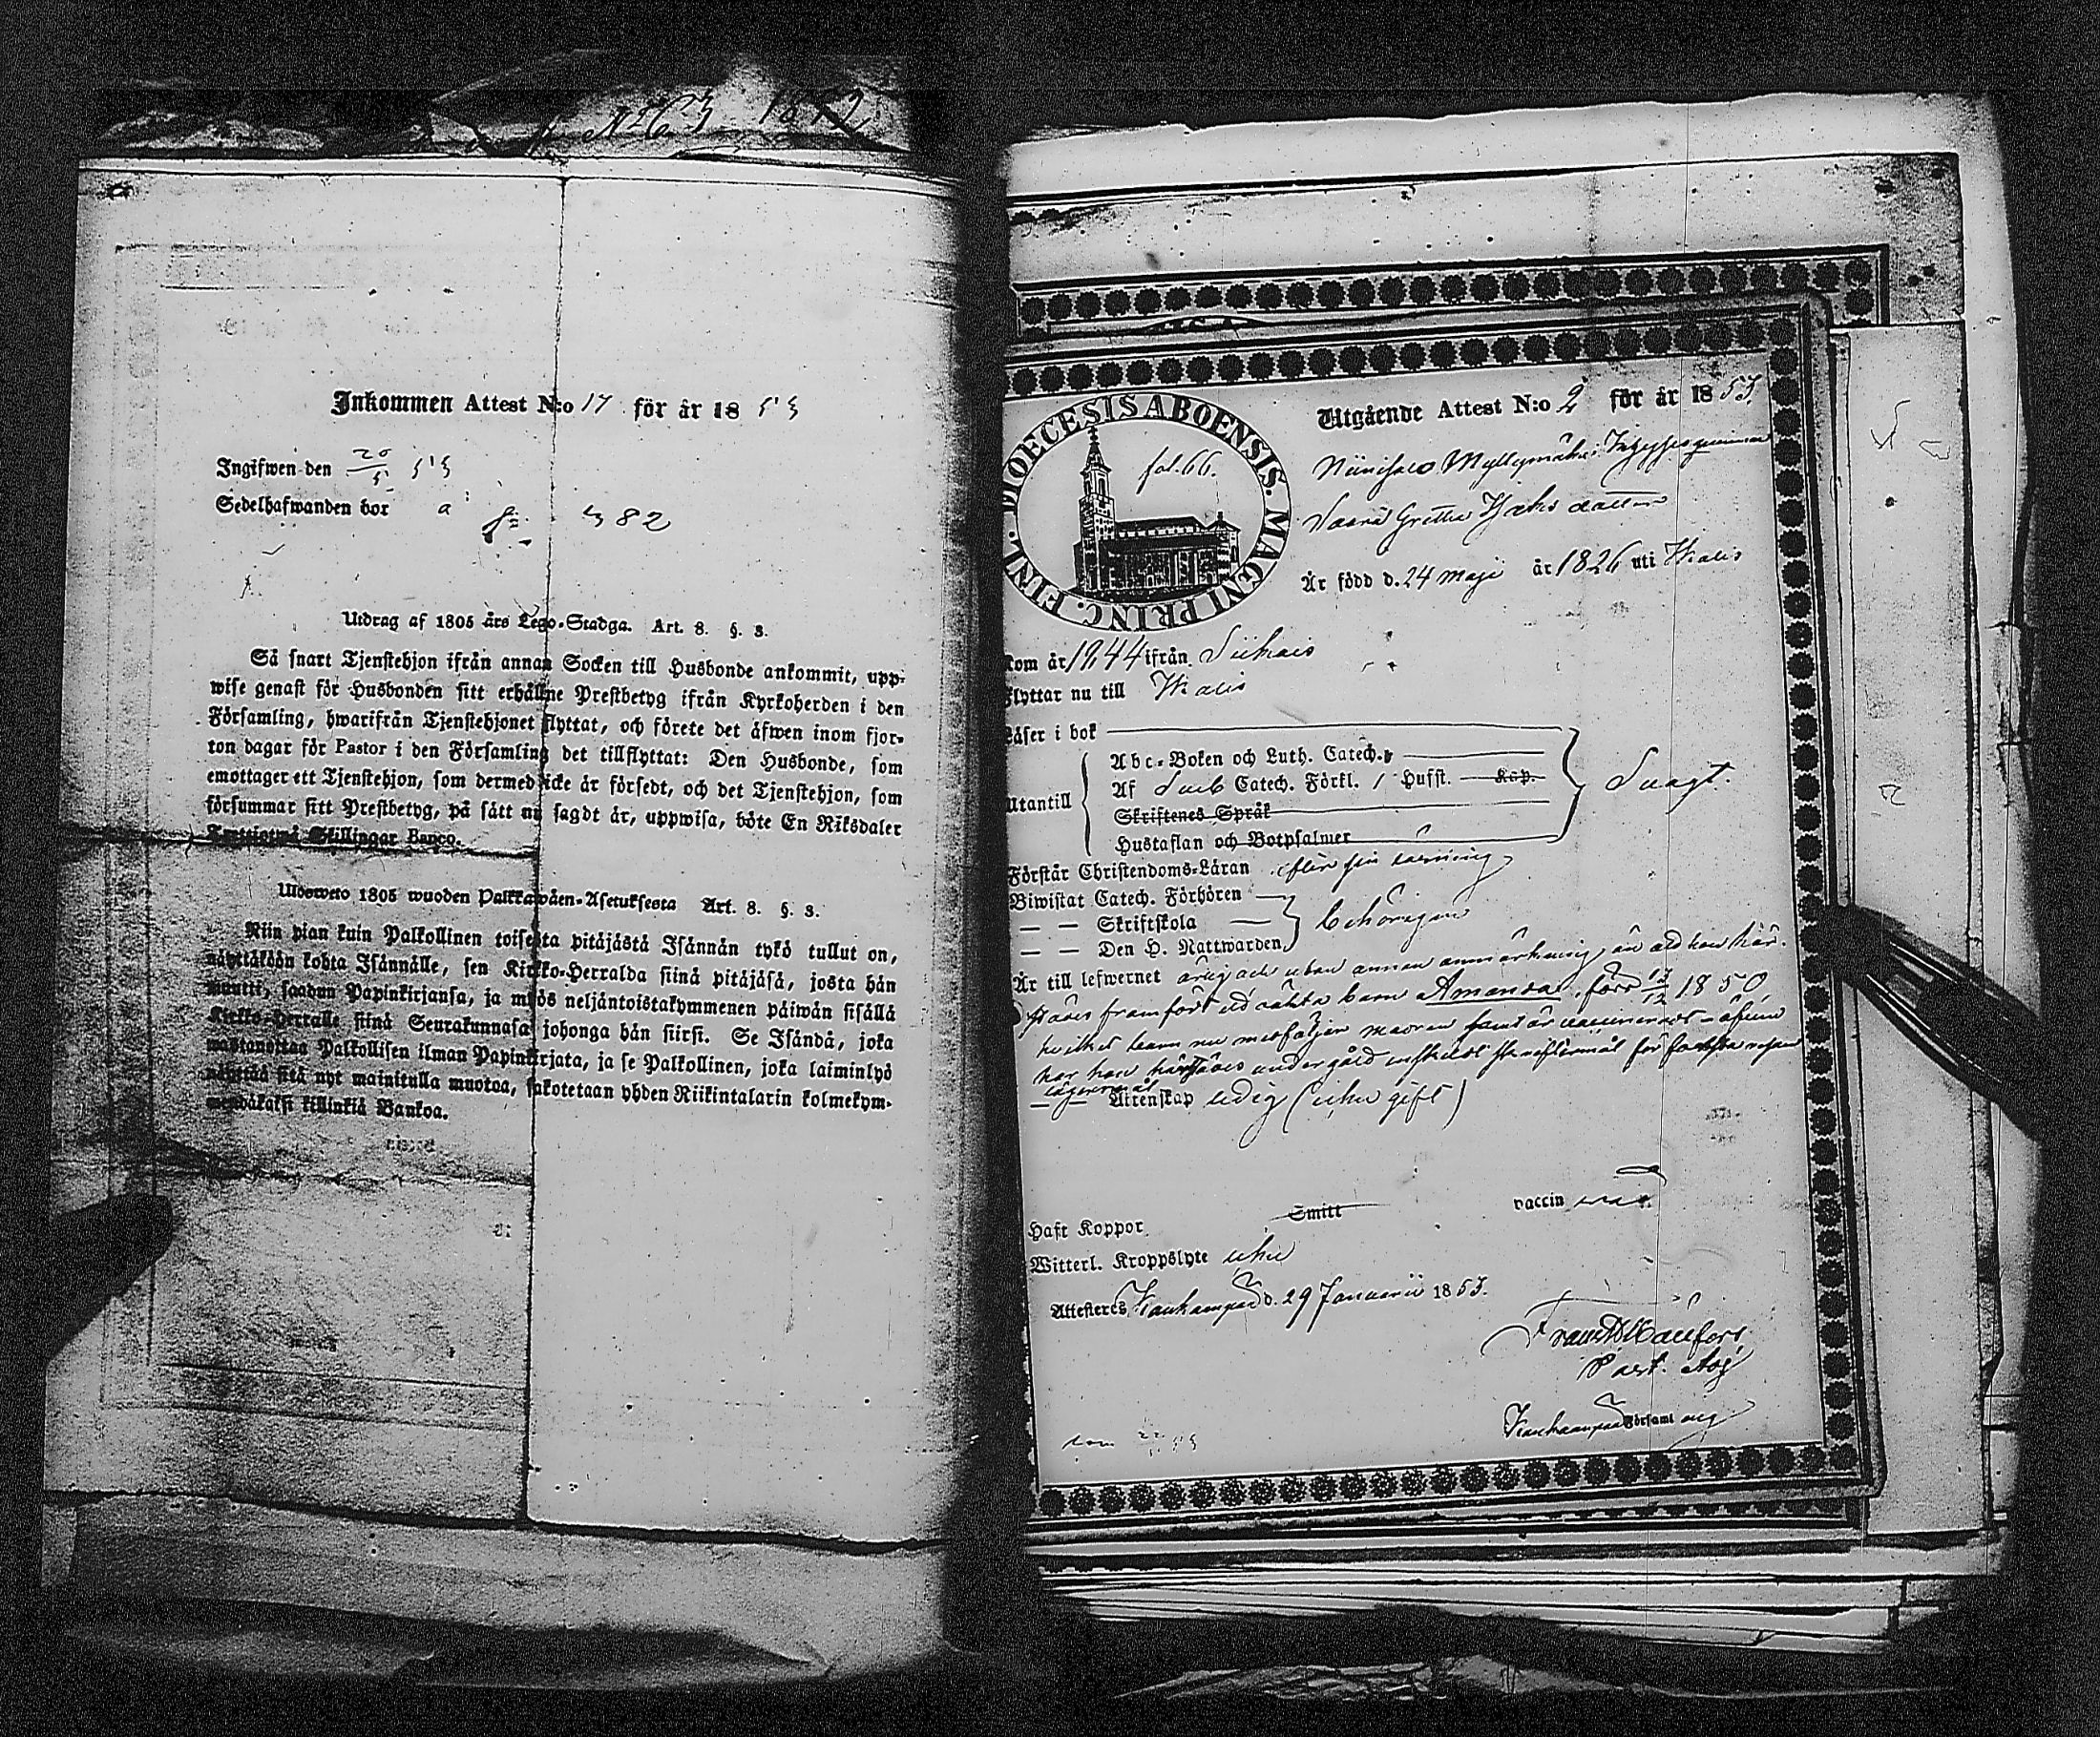 N:o 3 1852
Inkommen Attest N:o 17 för år 18 53
Ingifwen den 20/5 53
Sedelhafwanden bor a 382
Utdrag af 1805 års Lego-Stadga. Art. 8. §. 3.
Så snart Tjenstehjon ifrån annan Socken till Husbonde ankommit, upp-
wise genast för Husbonden sitt erhållne Prestbetyg ifrån Kyrkoherden i den
Församling, hwarifrån Tjenstehjonet flyttat, och förete det äfwen inom fjor-
ton dagar för Pastor i den Församling det tillflyttat: Den Husbonde, som
emottager ett Tjenstehjon, som dermed icke är försedt, och det Tjenstehjon, som
försummar sitt Prestbetyg, på sätt nu sagdt är, uppwisa, böte En Riksdaler
Trettiotwå Skillingar Banco.
Ulosweto 1805 wuoden Palkkawäen-Asetuksesta Art. 8. §. 3.
Niin pian kuin Palkollinen toisesta pitäjästä Isännän tykö tullut on,
näyttäköön kohta Isännälle, sen Kirkko-Herralda siinä pitäjäsä, josta hän
muutti, saadun Papinkirjansa, ja myös neljäntoistakymmenen päiwän sisällä
Kirkko-Herralle siinä Seurakunnasa johonga hän siirsi. Se Isändä, joka
wastanottaa Palkollisen ilman Papinkirjata, ja se Palkollinen, joka laiminlyö
näyttää sitä nyt mainitulla muotoa, sakotetaan yhden Riikintalarin kolmekym-
mendäkaksi killinkiä Bankoa.
DIOECESIS ABOENSIS. MAGNI PRINC. FINL.
fol. 66.
Utgående Attest N:o 2 för år 18 53.
Niinisalo Myllymäki
Saara Gretha
Är född d. 24 Maji år 1826 uti Ikalis
Kom år 1844 ifrån Siikais
Flyttar nu till Ikalis
Läser i bok
Abc-Boken och Luth. Catech.
Utantill Af Catech. Förkl. 1 Hufst. Kap. Svagt.
Skriftenes Språk
Hustaflan och Botpsalmer
Förstår Christendoms-Läran efter sin läsning
Biwistat Catech. Förhören
— — Skriftskola behörigen
— — Den H. Nattwarden
Är till lefwernet ärlig och utan annan anmärkning, än att hon här-
städes framfört ett oäkta barn Amanda, född 13/12 1850
hvilket barn nu medföljer modren samt är vaccinerat - äfven
har hon härstädes undergått enskildt skriftermål för första resan
lägersmål
— — Äktenskap ledig (icke gift)
Haft Koppor Smitt vaccin
Witterl. Kroppslyte icke
Attesteras Kankaanpää d. 29 Januarii 18 53.
Past. Adj.
Kankaanpää Församling